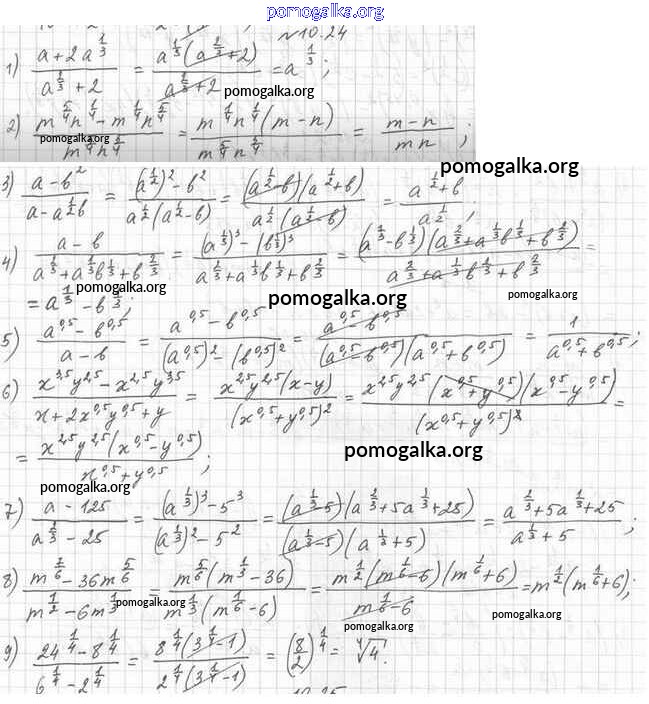 pomogalka.org
№10.24
1) (a + 2a^(1/3)) / (a^(2/3) + 2) = a^(1/3)(a^(2/3) + 2) / (a^(2/3) + 2) = a^(1/3);
pomogalka.org
2) (m^(5/4)n^(1/4) - m^(1/4)n^(5/4)) / (m^(5/4)n^(5/4)) = m^(1/4)n^(1/4)(m - n) / (m^(5/4)n^(5/4)) = (m - n) / (mn);
pomogalka.org
pomogalka.org
3) (a - b^2) / (a - a^(1/2)b) = ((a^(1/2))^2 - b^2) / (a^(1/2)(a^(1/2) - b)) = (a^(1/2) - b)(a^(1/2) + b) / (a^(1/2)(a^(1/2) - b)) = (a^(1/2) + b) / a^(1/2);
4) (a - b) / (a^(2/3) + a^(1/3)b^(1/3) + b^(2/3)) = ((a^(1/3))^3 - (b^(1/3))^3) / (a^(2/3) + a^(1/3)b^(1/3) + b^(2/3)) = (a^(1/3) - b^(1/3))(a^(2/3) + a^(1/3)b^(1/3) + b^(2/3)) / (a^(2/3) + a^(1/3)b^(1/3) + b^(2/3)) =
= a^(1/3) - b^(1/3);
pomogalka.org
pomogalka.org
pomogalka.org
5) (a^0,5 - b^0,5) / (a - b) = (a^0,5 - b^0,5) / ((a^0,5)^2 - (b^0,5)^2) = (a^0,5 - b^0,5) / ((a^0,5 - b^0,5)(a^0,5 + b^0,5)) = 1 / (a^0,5 + b^0,5);
6) (x^3,5y^2,5 - x^2,5y^3,5) / (x + 2x^0,5y^0,5 + y) = x^2,5y^2,5(x - y) / (x^0,5 + y^0,5)^2 = x^2,5y^2,5(x^0,5 + y^0,5)(x^0,5 - y^0,5) / (x^0,5 + y^0,5)^2 =
= x^2,5y^2,5(x^0,5 - y^0,5) / (x^0,5 + y^0,5);
pomogalka.org
pomogalka.org
7) (a - 125) / (a^(2/3) - 25) = ((a^(1/3))^3 - 5^3) / ((a^(1/3))^2 - 5^2) = (a^(1/3) - 5)(a^(2/3) + 5a^(1/3) + 25) / ((a^(1/3) - 5)(a^(1/3) + 5)) = (a^(2/3) + 5a^(1/3) + 25) / (a^(1/3) + 5);
8) (m^(7/6) - 36m^(5/6)) / (m^(1/2) - 6m^(1/3)) = m^(5/6)(m^(1/3) - 36) / (m^(1/3)(m^(1/6) - 6)) = m^(1/2)(m^(1/6) - 6)(m^(1/6) + 6) / (m^(1/6) - 6) = m^(1/2)(m^(1/6) + 6);
pomogalka.org
pomogalka.org
pomogalka.org
9) (24^(1/4) - 8^(1/4)) / (6^(1/4) - 2^(1/4)) = 8^(1/4)(3^(1/4) - 1) / (2^(1/4)(3^(1/4) - 1)) = (8/2)^(1/4) = ∜4.